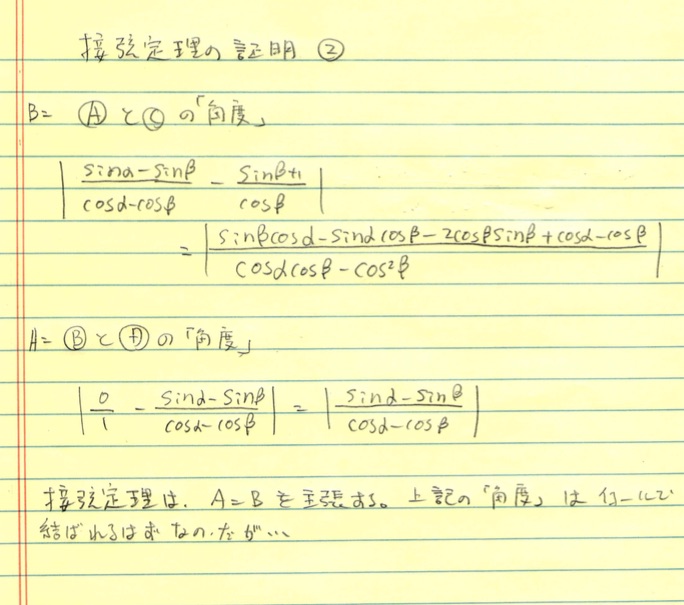 接弦定理の証明 ②
B= Ⓐ と Ⓒ の「角度」
| (sinα-sinβ)/(cosα-cosβ) - (sinβ+1)/cosβ |
= | (sinβcosα-sinαcosβ-2cosβsinβ+cosα-cosβ)/(cosαcosβ-cos²β) |
A= Ⓑ と の「角度」
| 0/1 - (sinα-sinβ)/(cosα-cosβ) | = | (sinα-sinβ)/(cosα-cosβ) |
接弦定理は、A=B を主張する。上記の「角度」は イコールで
結ばれるはずなのだが…